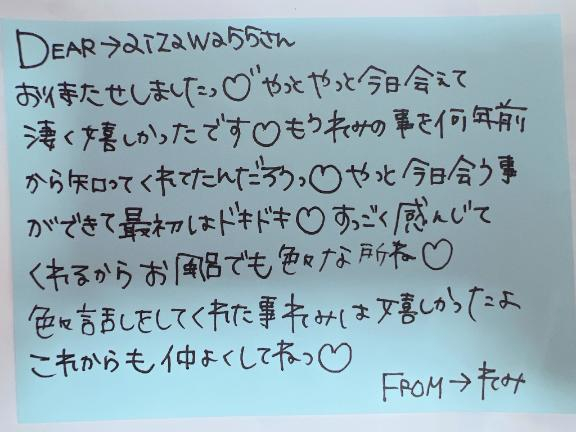 DEAR→aiZaWa55さん
お待たせしましたっ♡゛やっとやっと今日会えて
凄く嬉しかったです♡もうれみの事を何年前
から知ってくれてたんだろうっ♡やっと今日会う事
ができて最初はドキドキ♡すっごく感んじて
くれるからお風呂でも色々な所ね♡
色々話しをしてくれた事れみは嬉しかったよ
これからも仲よくしてねっ♡
FROM→れみ